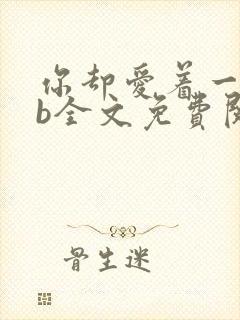 你却爱着一
b全文免費閱
骨生迷